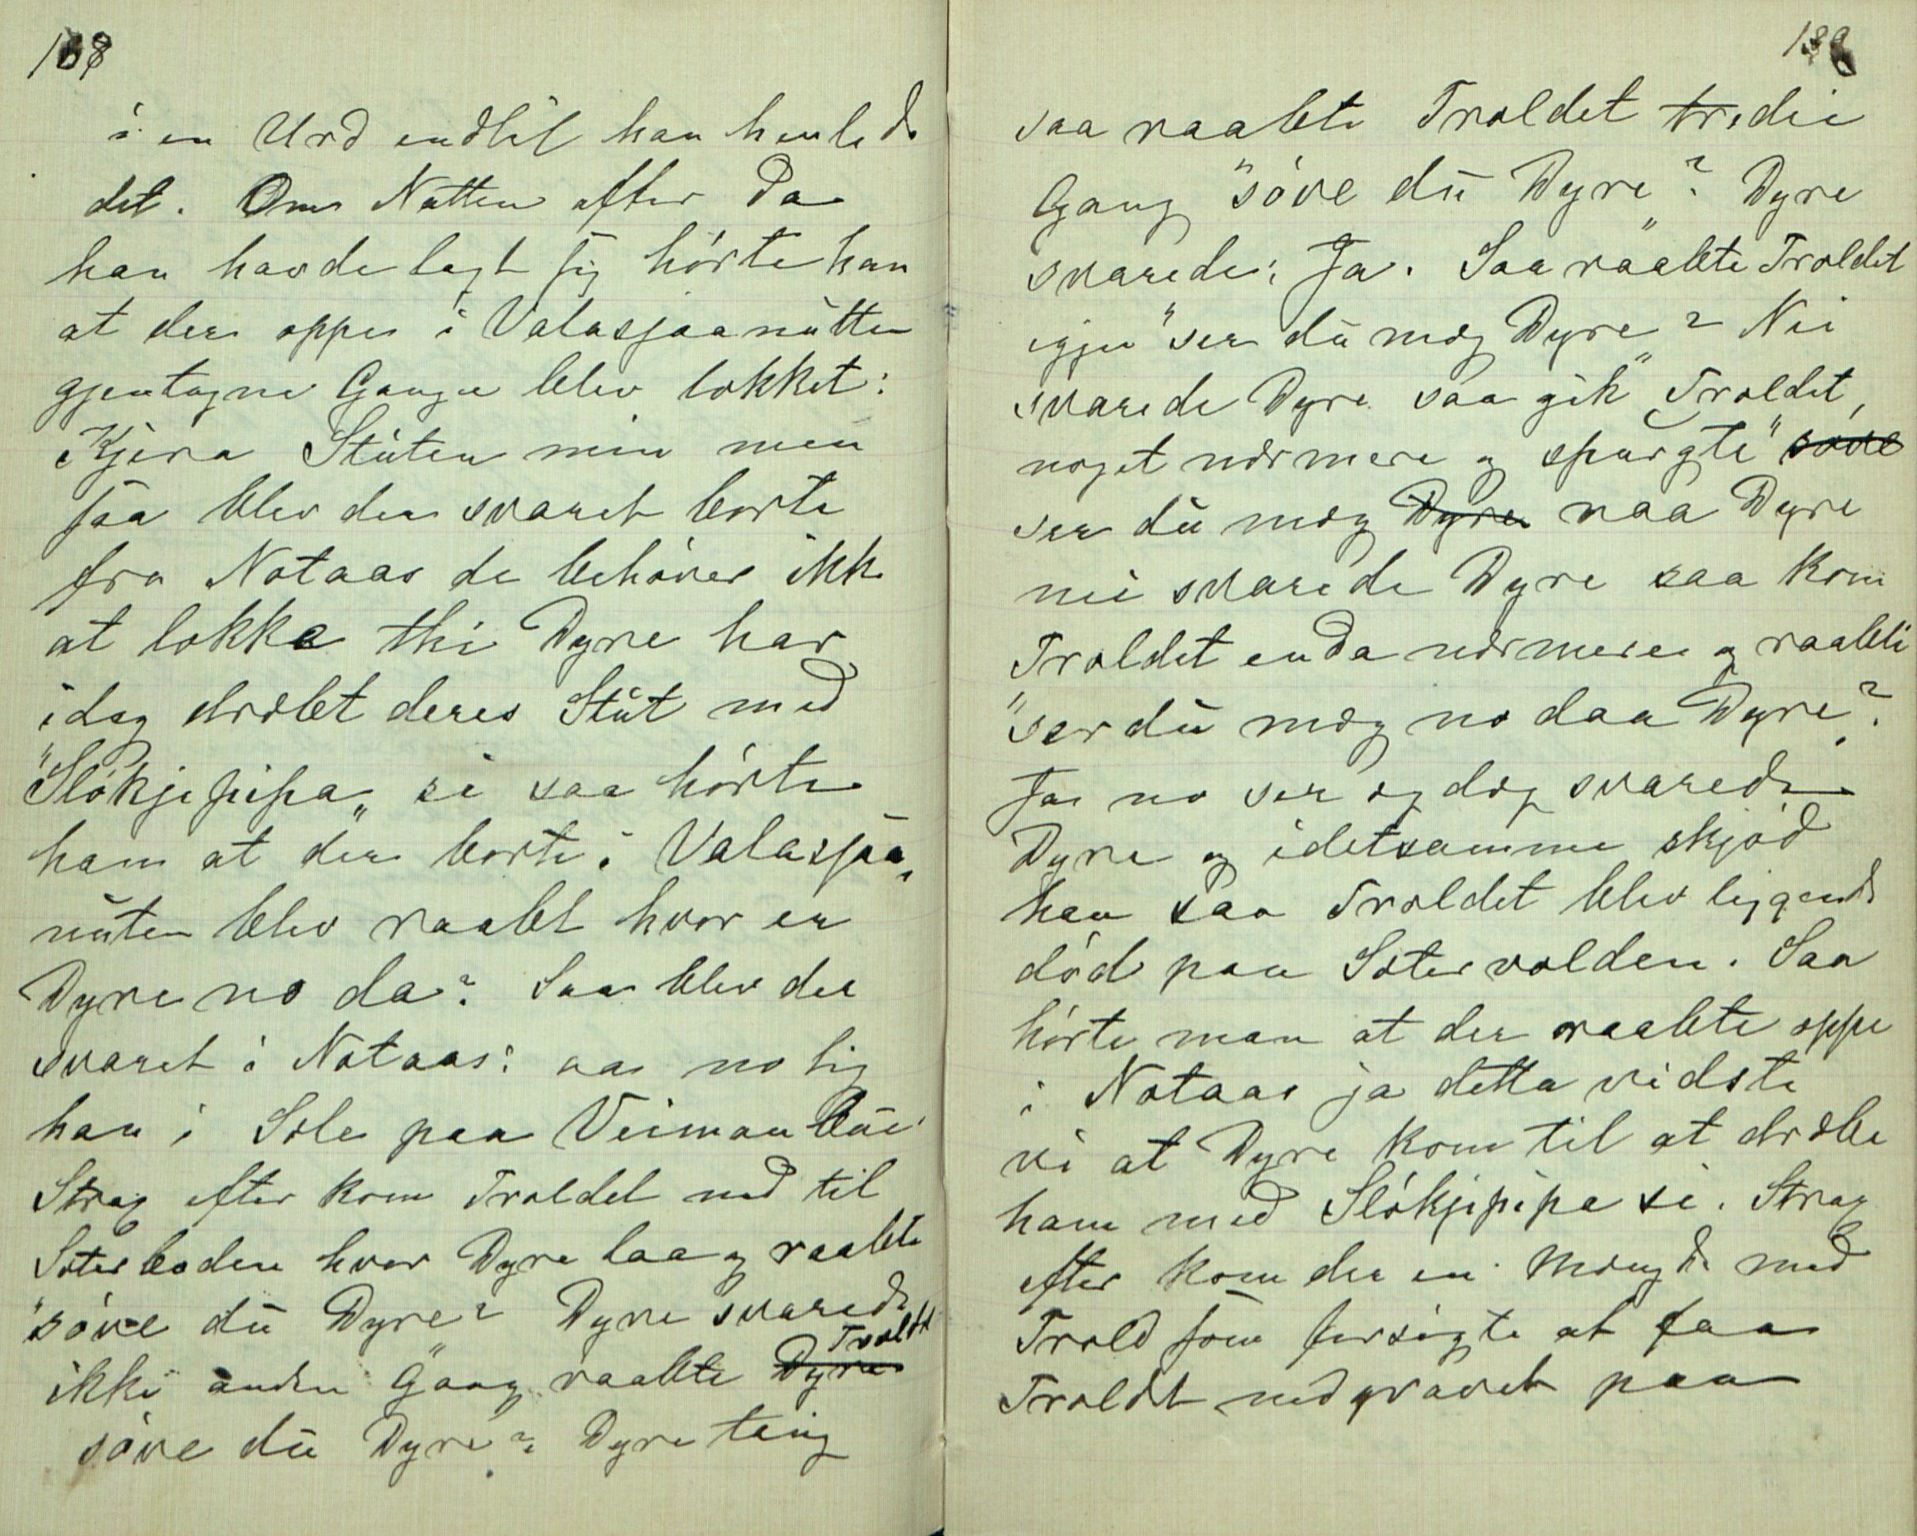 i en Urd endlil han henlede
det. Om Natten efter da
han havde lagt sig hörte han
at der oppe i Valasjaanutten
gjentagne Gange blev lokket:
Kjera Stuten min men
saa blev der svaret borte
fra Notaas de behöver ikke
at lokke thi Dyre har
idag dræbt deres Stut med
"Slökjepipa" si saa hörte
ham at der borte i Valasjaa-
nuten blev raabt hvor er
Dyre no da? Saa blev der
svaret i Notaas: aa no lig
han i Sele paa Veimanbui
Strax efter kom Troldet ned til
Sæterboden hvor Dyre laa og raabte
"söve du Dyre"? Dyre svarede
ikke anden Gang raabte Dyre Troldet
söve du Dyre"? Dyre taug
138
saa raabte Troldet tredie
Gang "söve du Dyre"? Dyre
svarede: Ja. Saa raabte Troldet
igjen "ser du mæg Dyre"? Nei
svarede Dyre saa gik Troldet,
noget nærmere og spurgte "söve
ser du mæg Dyre naa Dyre
nei svarede Dyre saa kom
Troldet enda nærmere og raabte
"ser du mæg no daa Dyre"?
Ja no ser eg dæg svarede
Dyre og idetsamme skjöd
han saa Troldet blev liggende
död paa Sætervolden. Saa
hörte man at der raabte oppe
i Notaas ja detta vidste
vi at Dyre kom til at dræbe
ham med Slökjepipa si. Strax
efter kom der en Mængde med
Trold som forsögte at faa
Troldet nedgravet paa